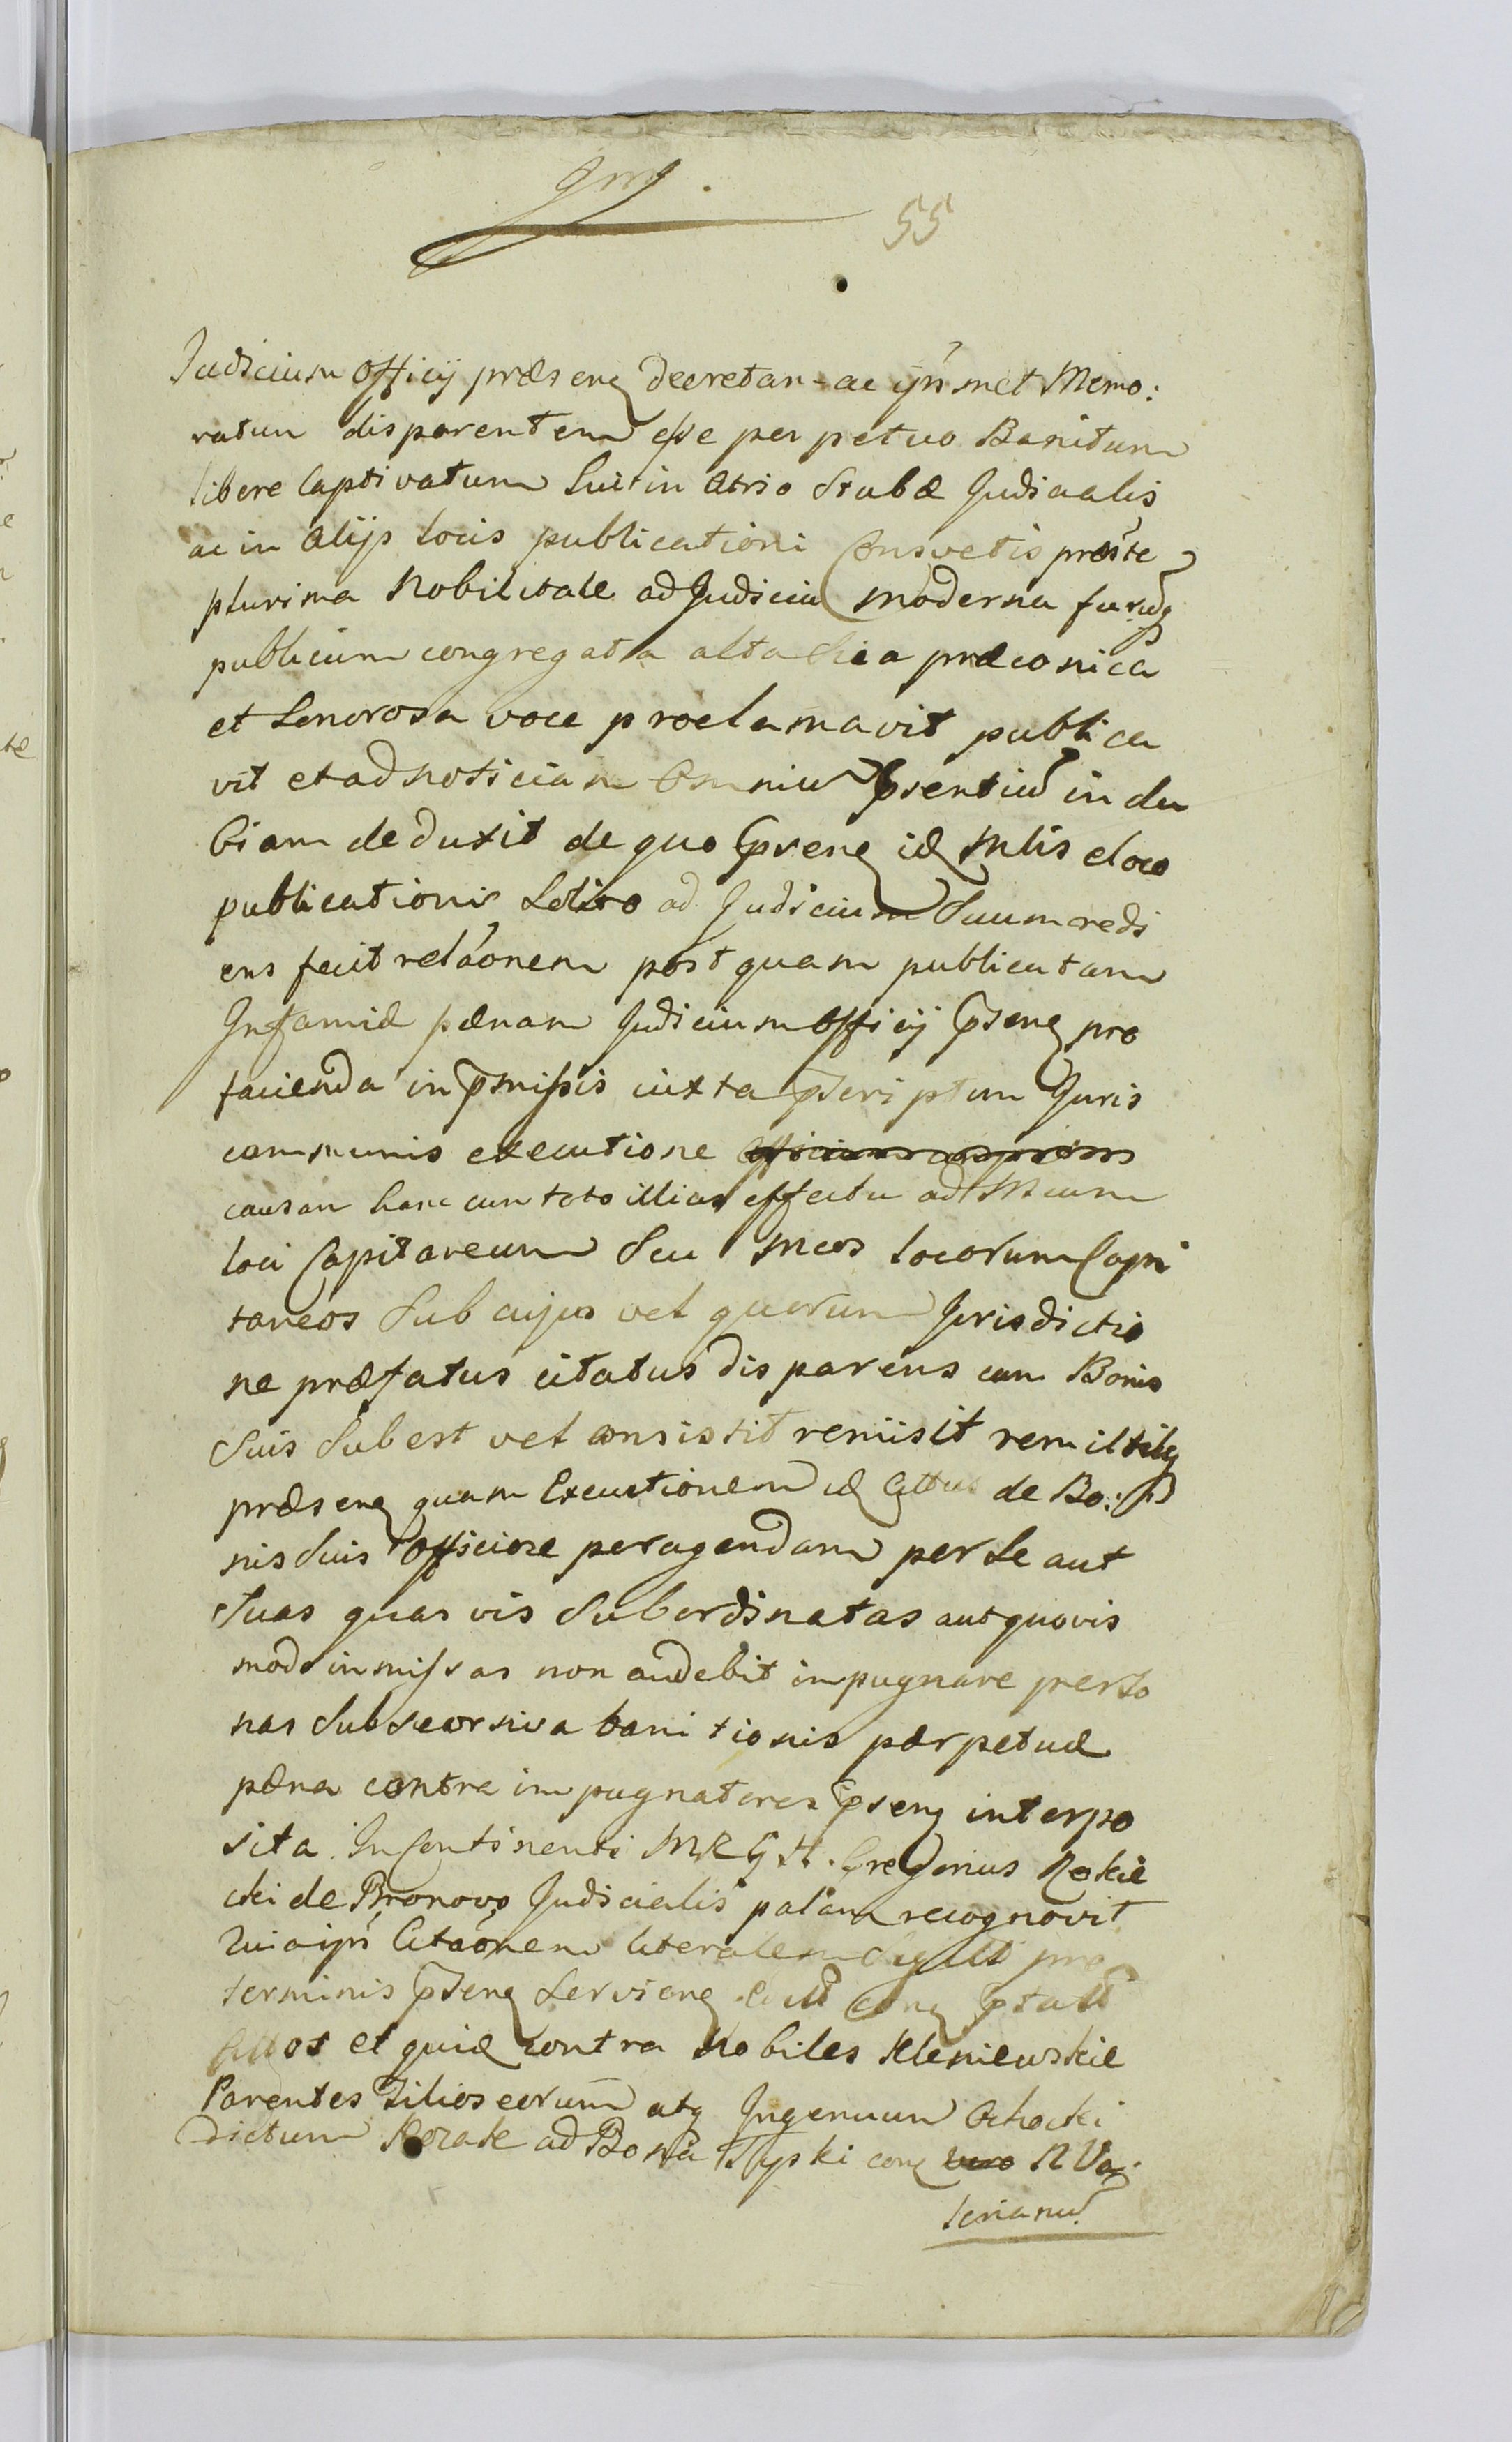 55
Judicium Officij præsens decretan- ac ipsmet Memo:
ratum disparentem esse perpetuo Banitum
libere Captivatum Suit in Atrio Stubæ Judicialis
ac in Alijs locis publicationi Consvetis præste
plurima Nobilitate ad Judiciu moderna
publicum congregata alta præconica
et Sonorosa voce proclamavit publica
vit et ad noticiam Omniu Psentiu in du
biam deduxit de quo Psens id Mlis e loco
publicationis Solito ad Judicium Suum redi
ens fecit relaonem post quam publicatam
Infamiæ pænam Judicium Officij Psens pro
facienda in Pmissis iuxta Pscriptum Juris
communis executione
causam hanc cum toto illius effectu ad Mcum
loci Capitaneum Seu Mcos locorum Capi
taneos Sub cujus vel quorum Jurisdictio
ne præfatus citatus disparens cum Bonis
Suis Subest vel consistit remisit remittitq
præsens quam Executionem id Cittus de Bo:
nis Suis Officiose peragendam per Se aut
Suas quas vis Subordinatas aut quovis
modo inmissas non audebit inpugnare perso
nas Sub banitionis perpetuæ
pæna contra inpugnatores Psens interpo
sita. In Continenti MRGH. Gregorius Rokic
cki de Bronovo Judicialis palam recognovit
Quia ips Citaonem literalem Sigill pro
terminis Psens Serviens
et quid contra Nobiles Kleniewskie
Parentes Filios eorum atq Ingenuum Ochocki
dictum Kozak ad Bona Tyski cons R Va
lerianu